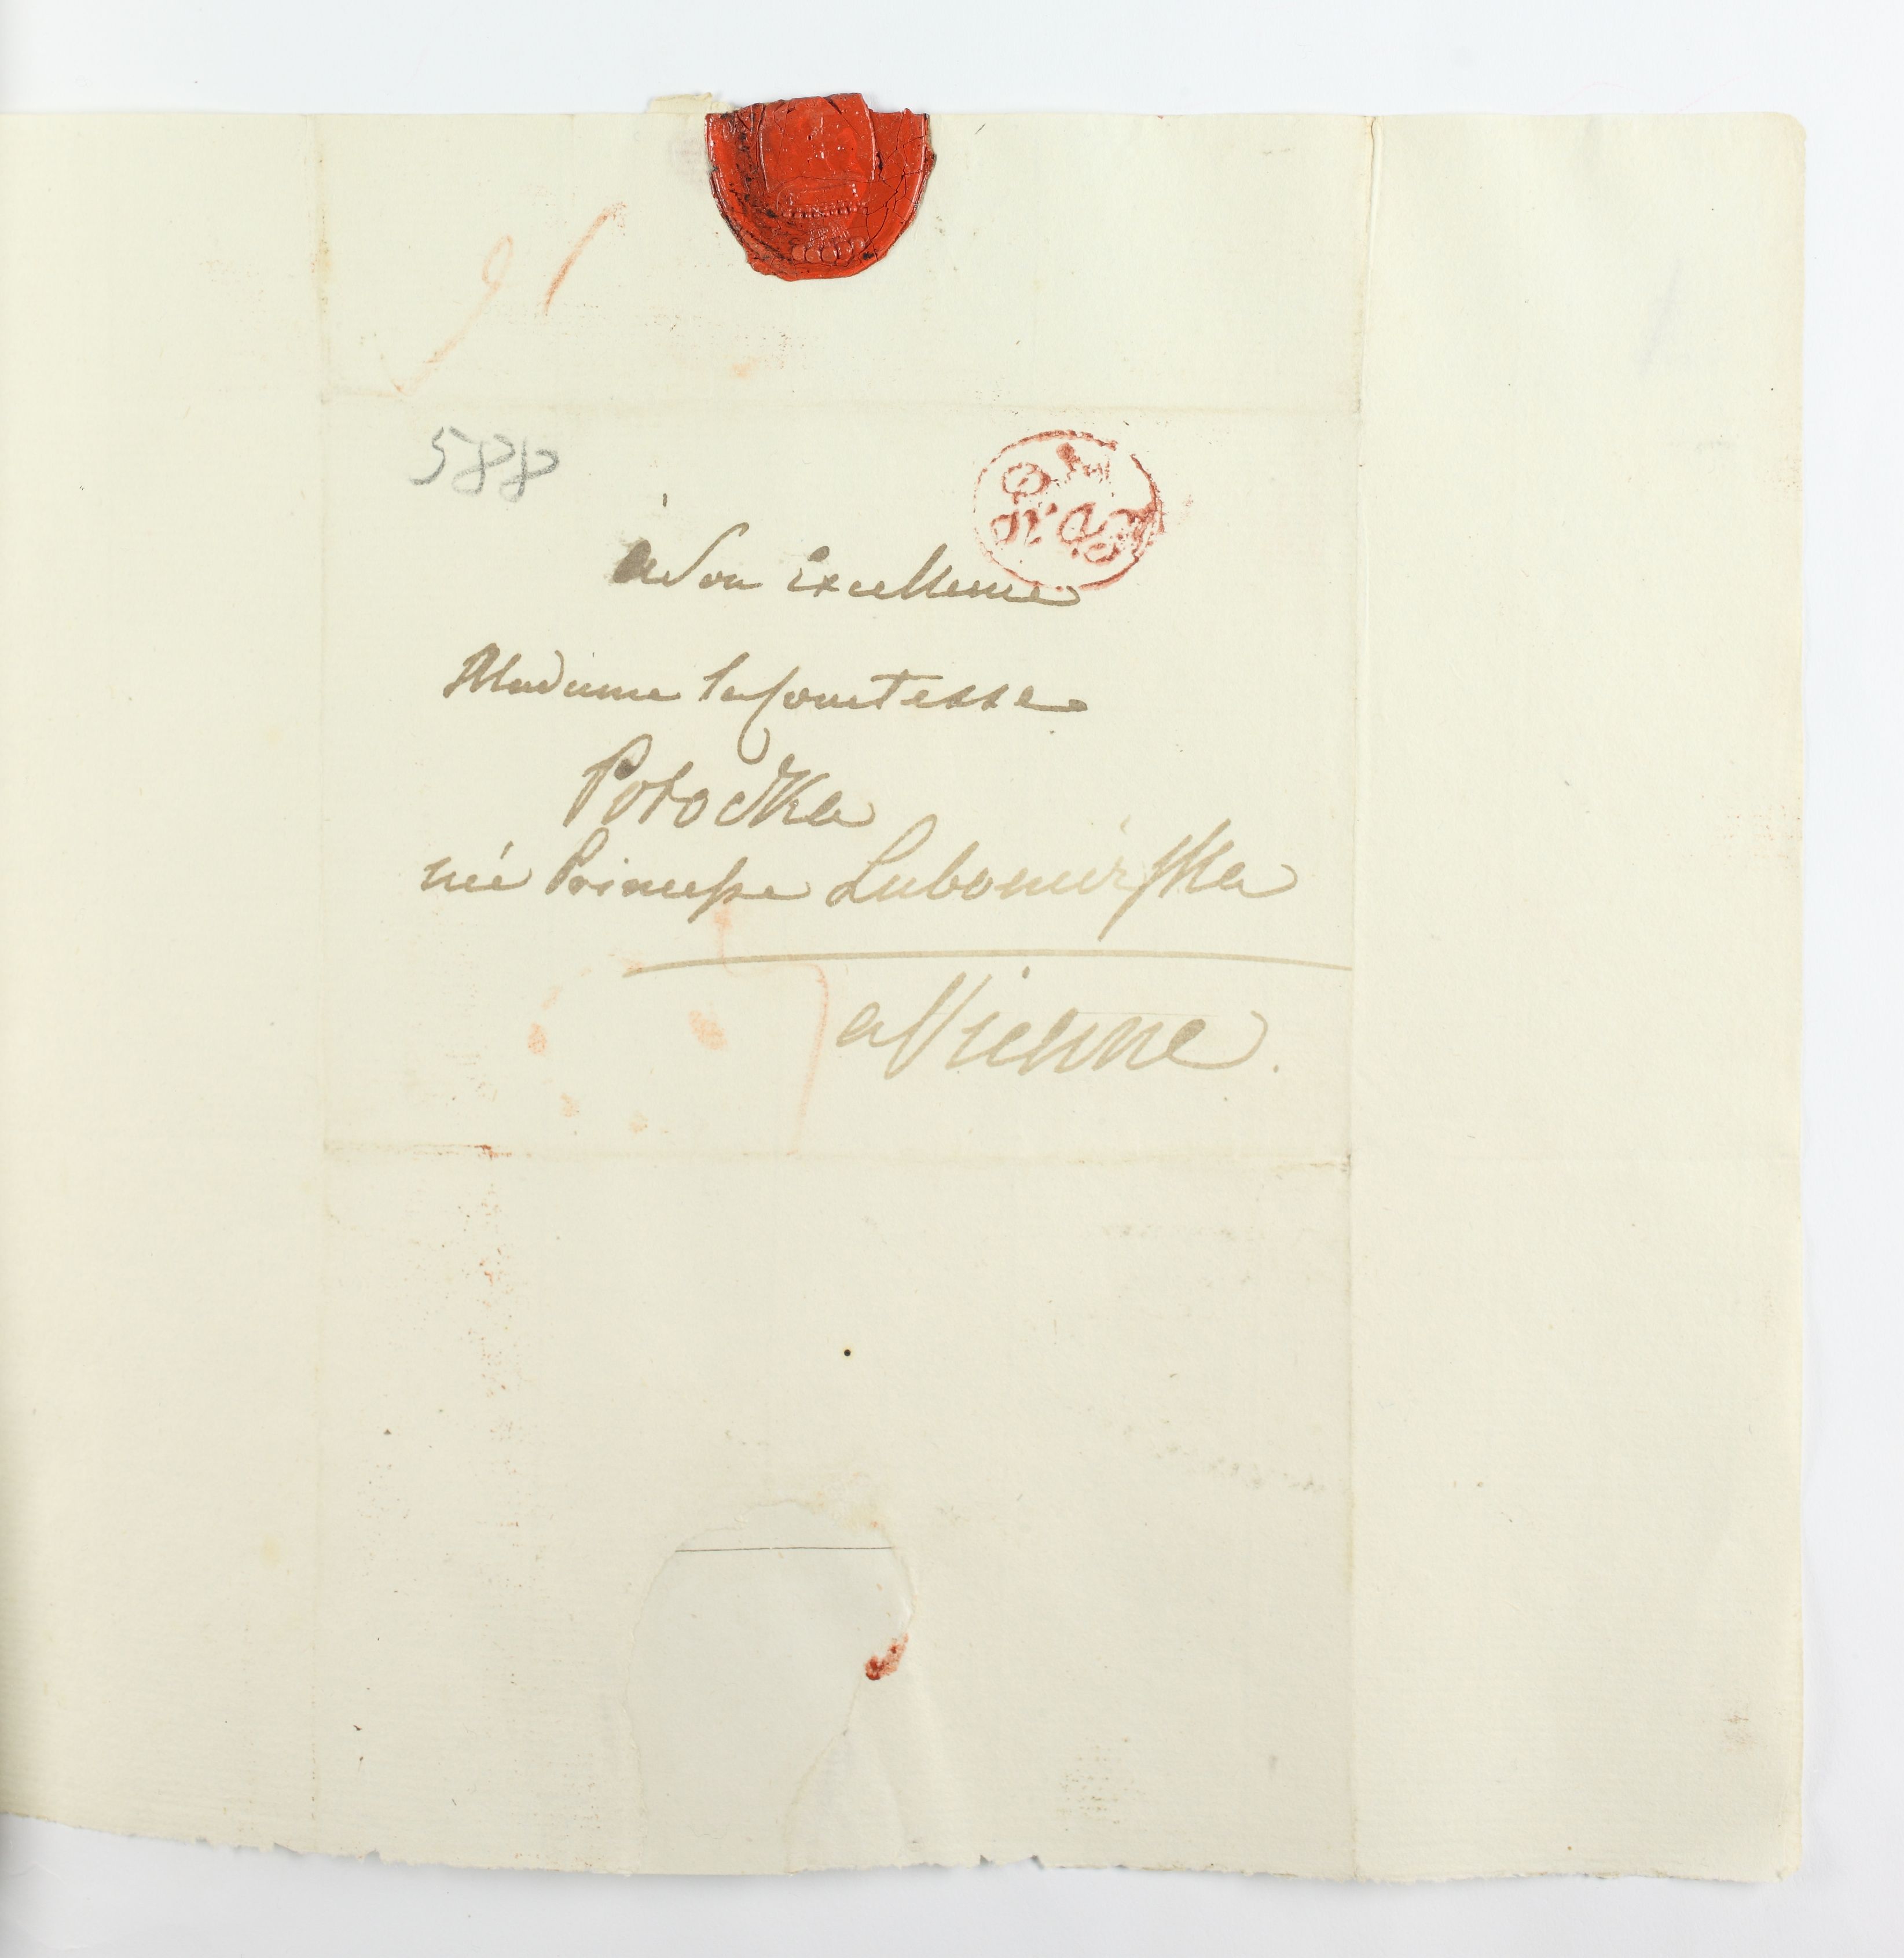 588
à Son Excellence
Madame la Comtesse
Potocka
née Princesse Lubomirska
a Vienne.